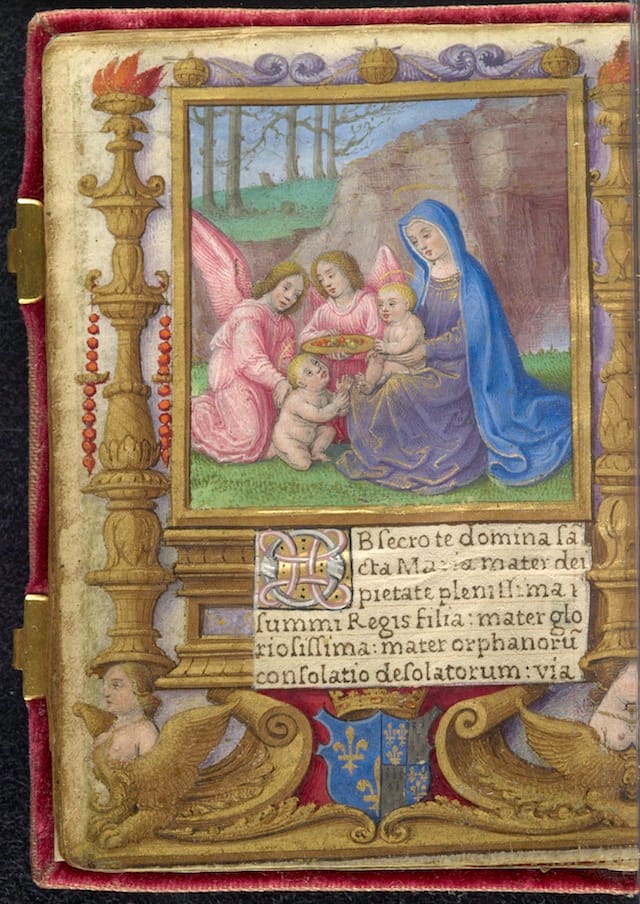 OBsecro te domina sā
cta Maria mater dei
pietate plenissima:
summi Regis filia: mater glo
riosissima: mater orphanorū
consolatio desolatorum: via